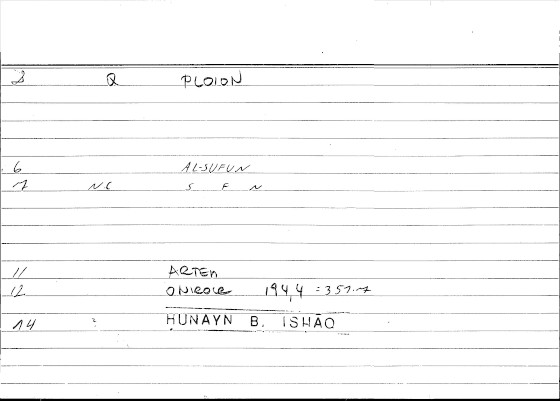 3 Q PLOION
6 AL-SUFUN
7 NC S F N
11 ARTEM
12 ONIROCR 194,4 = 351.7
14 ? ḤUNAYN B. ISḤĀQ